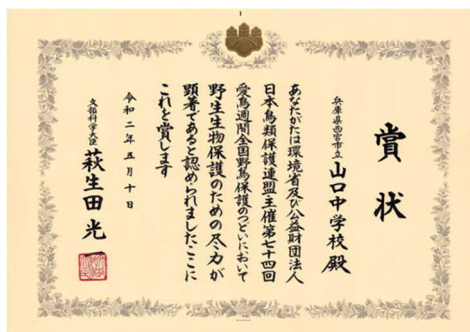 賞状
兵庫県西宮市立山口中学校殿
あなたがたは環境省及び公益財団法人
日本鳥類保護連盟主催第七十四回
愛鳥週間全国野鳥保護のつどいにおいて
野生生物保護のための尽力が
顕著であると認められましたここに
これを賞します
令和二年五月十日
文部科学大臣 萩生田光